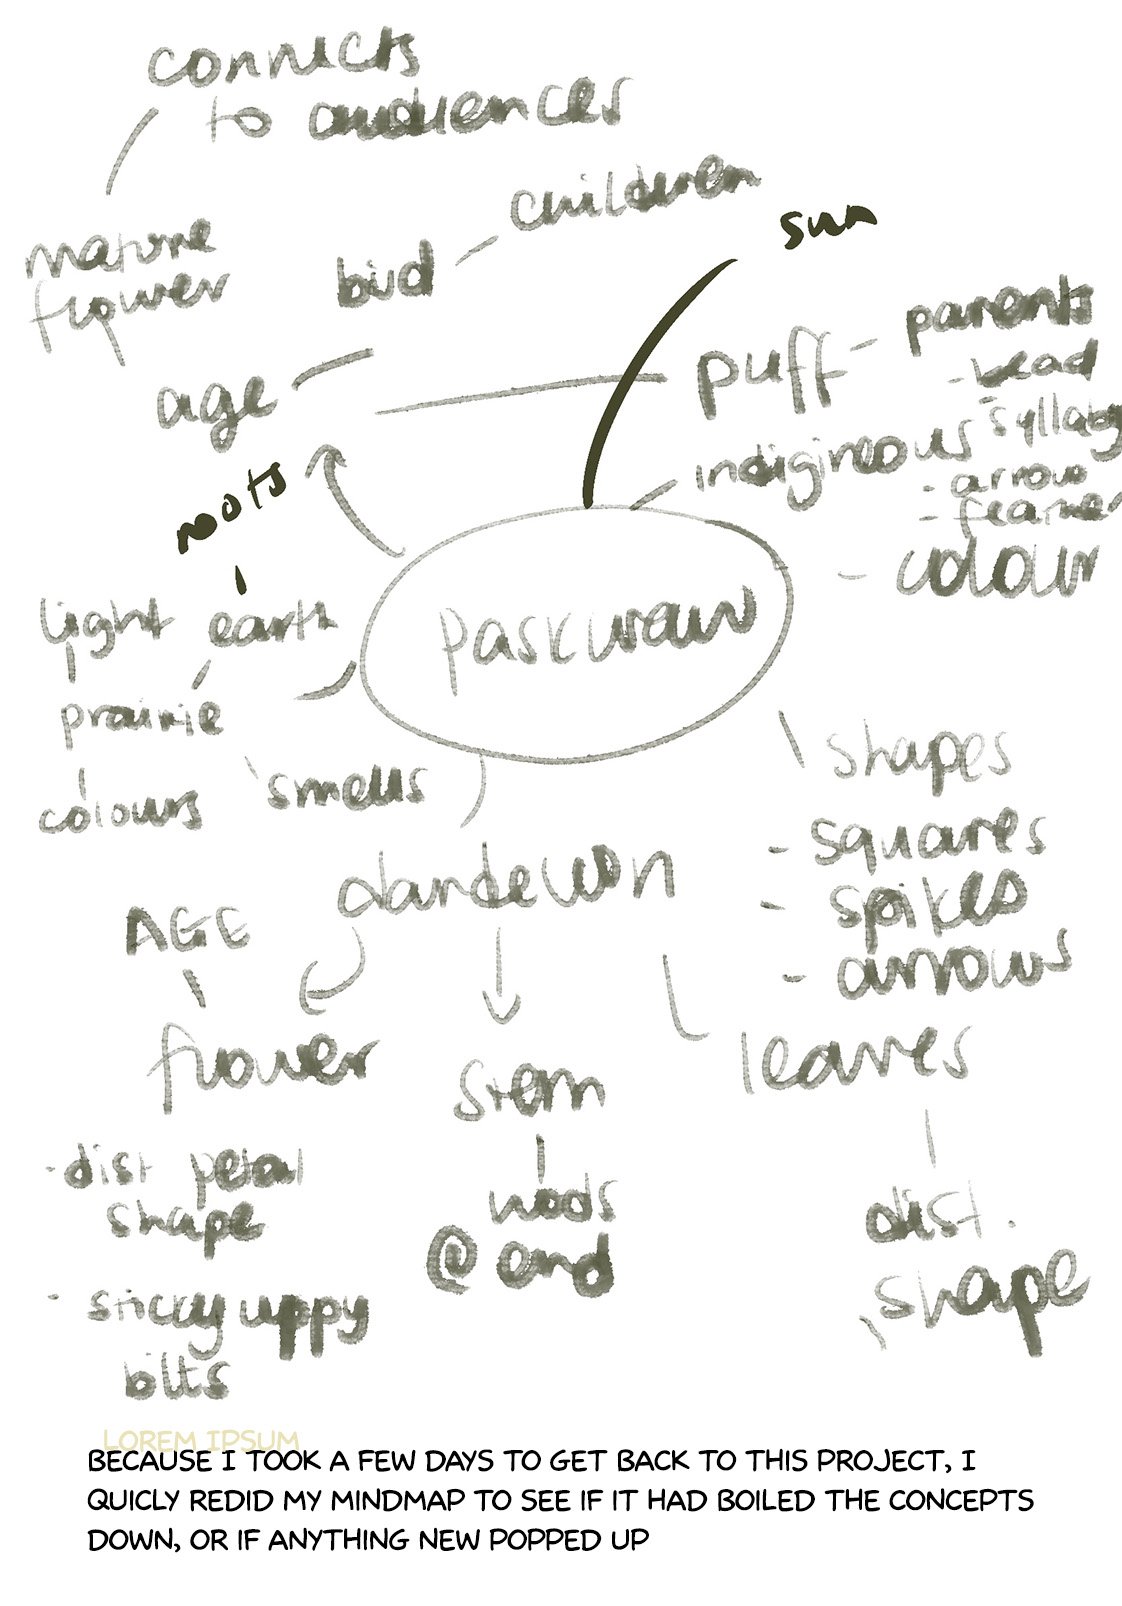 connects
to audiences
childeren
sun
mature
flower
bud
parents
puff
- bead
age
- syllabs
indigineous
- arrow
roots
- feather
- colour
light earth
paskwaw
prairie
shapes
colours
smells
- squares
dandelion
- spikes
AGE
- arrows
flower
stem
leaves
- dist petal
shape
nods
@ end
dist.
shape
- sticky uppy
bits
LOREM IPSUM
BECAUSE I TOOK A FEW DAYS TO GET BACK TO THIS PROJECT, I
QUICLY REDID MY MINDMAP TO SEE IF IT HAD BOILED THE CONCEPTS
DOWN, OR IF ANYTHING NEW POPPED UP